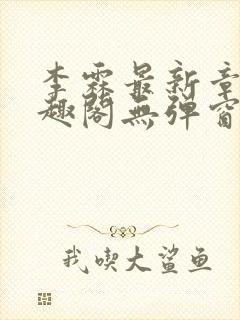 李霖最新章
趣阁無弹窗
我喫大鲨鱼